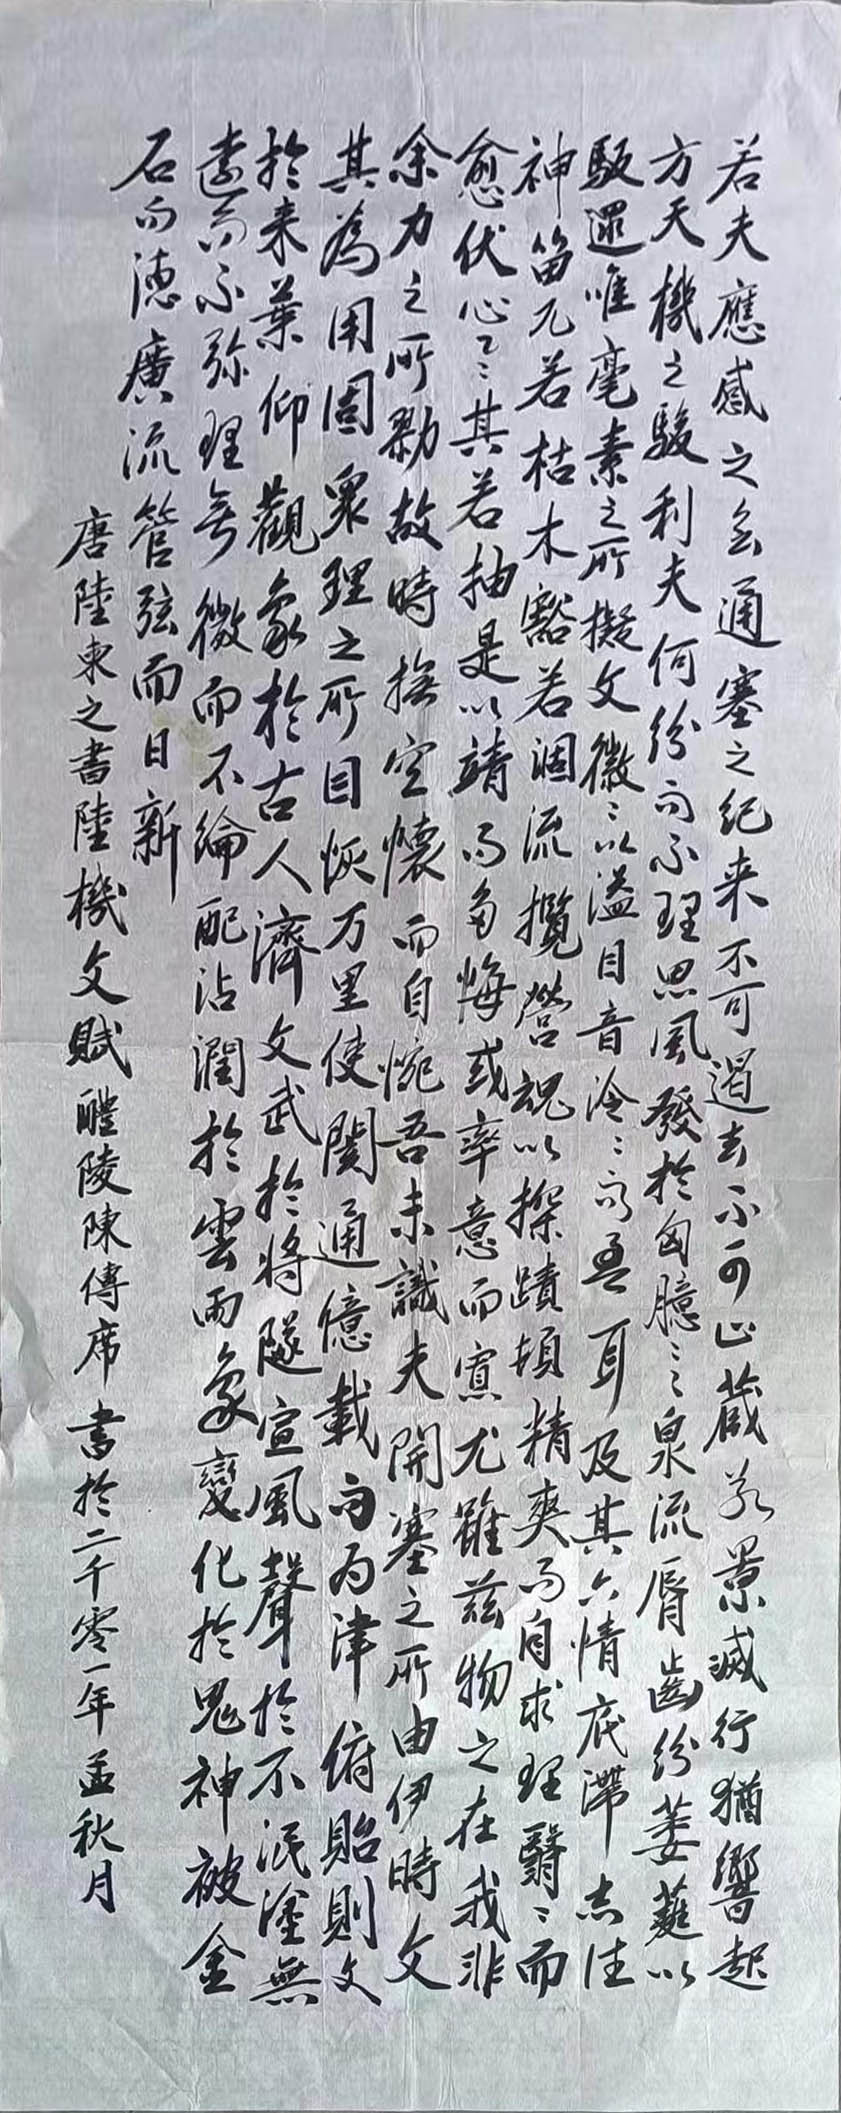 若夫應感之會通塞之紀来不可遏去不可止蔵若景滅行猶響起
方天機之駿利夫何紛而不理思風發於匈臆言泉流脣齒紛葳蕤以
馺遝唯毫素之所擬文徽〻以溢目音泠〻而盈耳及其六情底滯志往
神留兀若枯木豁若涸流攬營魂以探賾頓精爽而自求理翳〻而
愈伏心乙〻其若抽是以竭而多悔或率意而寡尤雖兹物之在我非
余力之所勠故時撫空懷而自惋吾未識夫開塞之所由伊時文
其為用固衆理之所因恢万里使閡通億載而为津俯貽則文
於来葉仰觀象於古人濟文武於將隊宣風聲於不泯塗無
遠而不弥理無微而不綸配沾潤於雲雨象變化於鬼神被金
石而德廣流管弦而日新
唐陸柬之書陸機文賦醴陵陳傳席書於二千零一年孟秋月